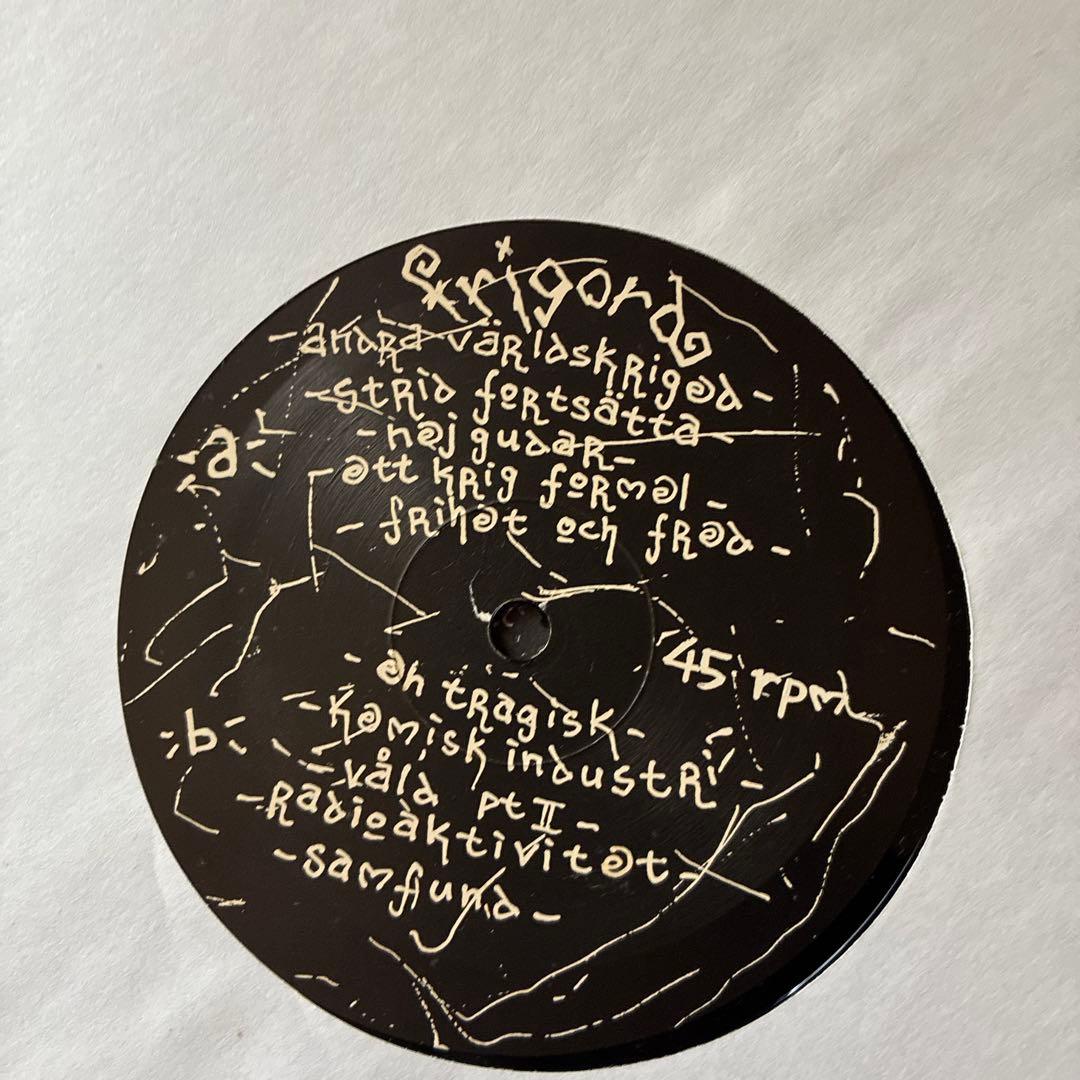 frigord
-andra världskriged-
-strid fortsätta-
:a:
-nej gudar-
-ett krig formel-
-frihet och fred-
45 rpm
-eh tragisk-
-kemisk industri-
:b:
-våld pt II-
-radioaktivitet-
-samfund-